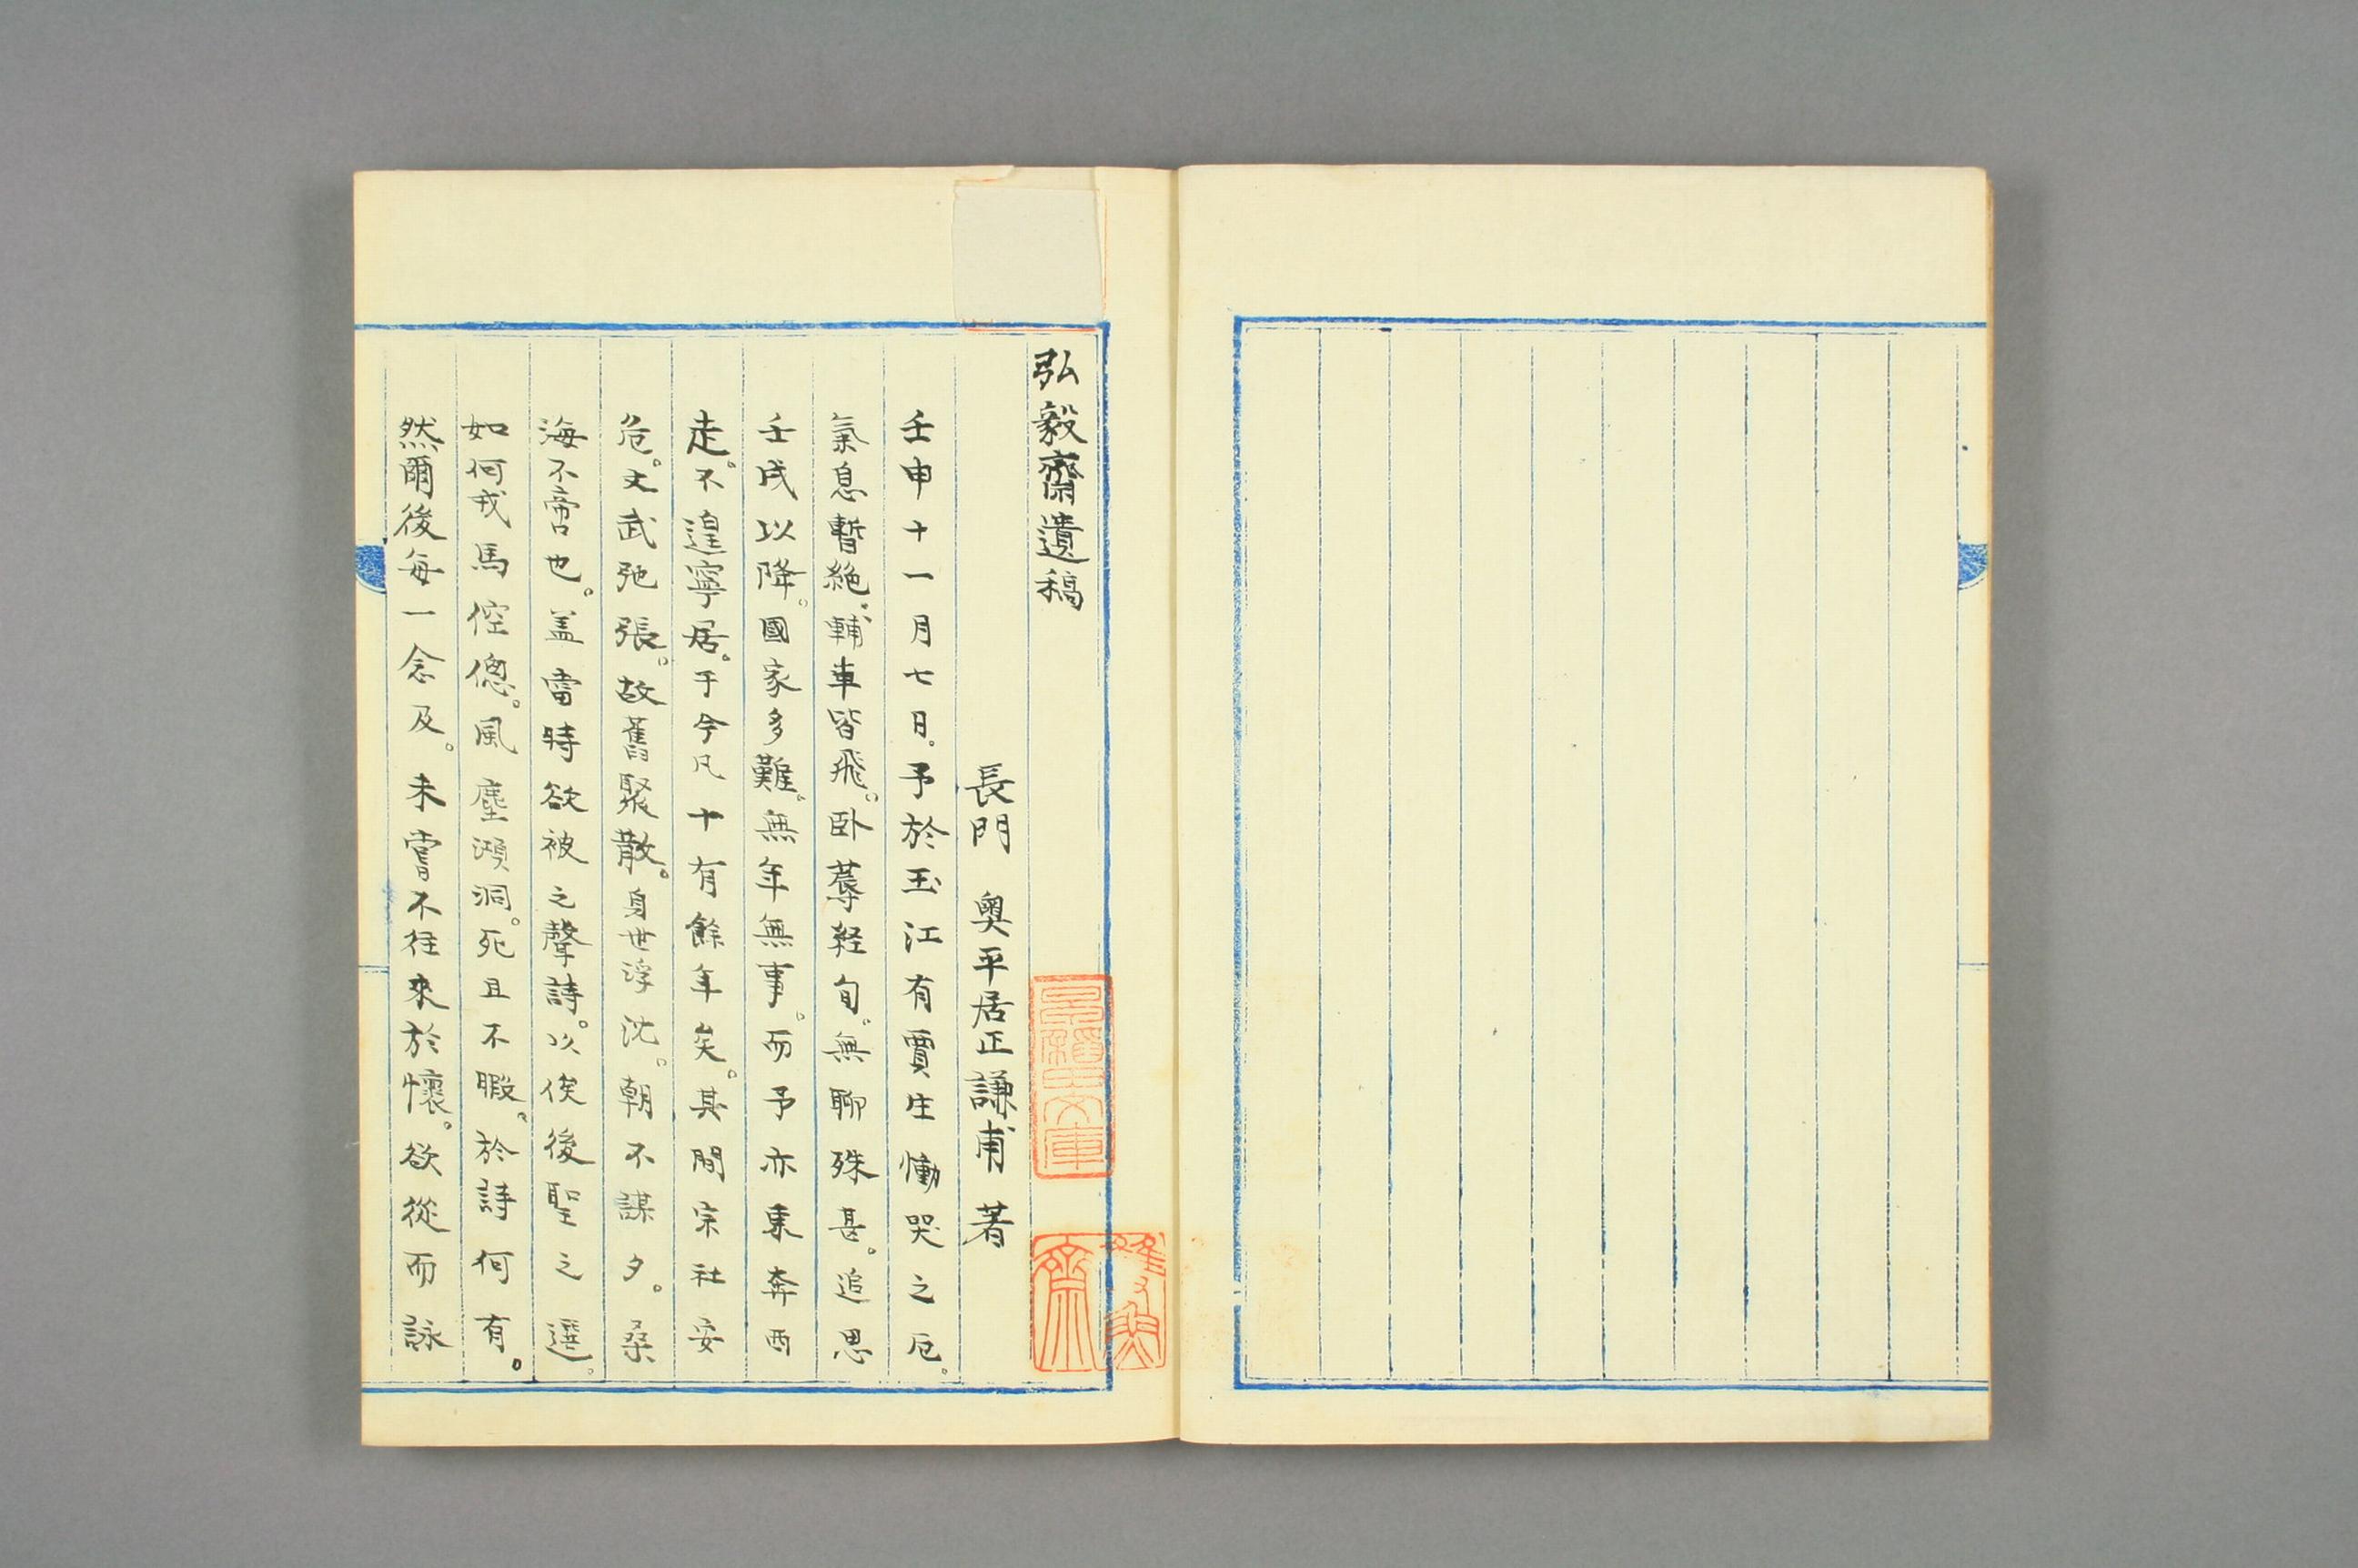 弘毅齋遺稿
長門　奥平居正謙甫　著
壬申十一月七日。予於玉江有賈生慟哭之厄。
氣息暫絶。輔車皆飛。卧蓐経旬。無聊殊甚。追思
壬戌以降。國家多難。無年無事。而予亦東奔西
走。不遑寧居。于今凡十有餘年矣。其間宗社安
危。文武弛張。故舊聚散。身世浮沈。朝不謀夕。桑
海不啻也。盖當時欲被之聲詩。以俟後聖之選。
如何戎馬倥偬。風塵澒洞。死且不暇。於詩何有。
然爾後每一念及。未嘗不往來於懷。欲從而詠